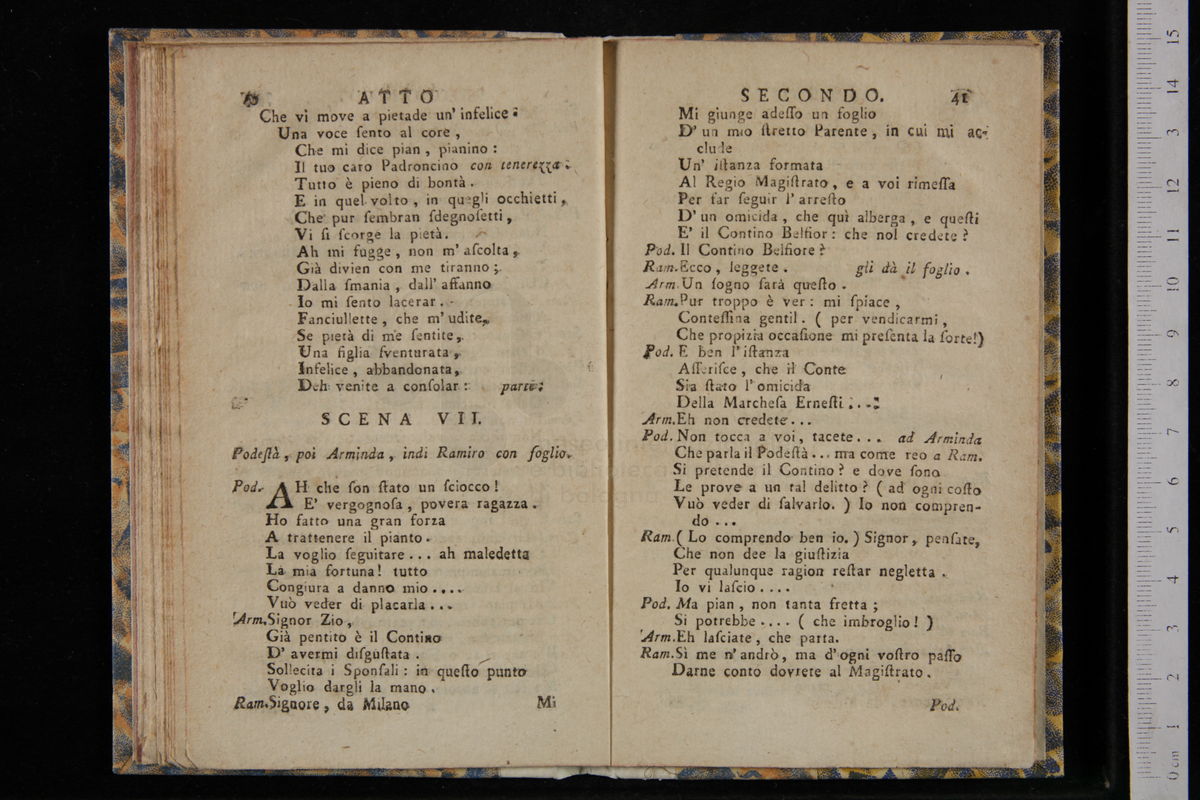 ATTO
Che vi move a pietade un' infelice:
Una voce ſento al core,
Che mi dice pian, pianino:
Il tuo caro Padroncino con tenerezza.
Tutto è pieno di bontà.
E in quel volto, in quegli occhietti,
Che pur ſembran ſdegnoſetti,
Vi ſi ſcorge la pietà.
Ah mi fugge, non m' aſcolta,
Già divien con me tiranno;
Dalla ſmania, dall' affanno
Io mi ſento lacerar.
Fanciullette, che m' udite,
Se pietà di me ſentite,
Una figlia ſventurata,
Infelice, abbandonata,
Deh venite a conſolar: parte:
SCENA VII.
Podeſtà, poi Arminda, indi Ramiro con foglio.
Pod. AH che ſon ſtato un ſciocco!
E' vergognoſa, povera ragazza.
Ho fatto una gran forza
A trattenere il pianto.
La voglio ſeguitare... ah maledetta
La mia fortuna! tutto
Congiura a danno mio....
Vuò veder di placarla...
Arm. Signor Zio,
Già pentito è il Contino
D' avermi diſguſtata.
Sollecita i Sponſali: in queſto punto
Voglio dargli la mano.
Ram. Signore, da Milano
Mi
SECONDO. 41
Mi giunge adeſſo un foglio
D' un mio ſtretto Parente, in cui mi ac-
clude
Un' iſtanza formata
Al Regio Magiſtrato, e a voi rimeſſa
Per far ſeguir l' arreſto
D' un omicida, che quì alberga, e queſti
E' il Contino Belfior: che nol credete?
Pod. Il Contino Belfiore?
Ram. Ecco, leggete. gli dà il foglio.
Arm. Un ſogno ſarà queſto.
Ram. Pur troppo è ver: mi ſpiace,
Conteſſina gentil. (per vendicarmi,
Che propizia occaſione mi preſenta la ſorte!)
Pod. E ben l' iſtanza
Aſſeriſce, che il Conte
Sia ſtato l' omicida
Della Marcheſa Erneſti...
Arm. Eh non credete...
Pod. Non tocca a voi, tacete... ad Arminda
Che parla il Podeſtà... ma come reo a Ram.
Si pretende il Contino? e dove ſono
Le prove a un tal delitto? (ad ogni coſto
Vuò veder di ſalvarlo.) Io non compren-
do...
Ram. (Lo comprendo ben io.) Signor, penſate,
Che non dee la giuſtizia
Per qualunque ragion reſtar negletta.
Io vi laſcio....
Pod. Ma pian, non tanta fretta;
Si potrebbe.... (che imbroglio!)
Arm. Eh laſciate, che parta.
Ram. Sì me n' andrò, ma d' ogni voſtro paſſo
Darne conto dovrete al Magiſtrato.
Pod.